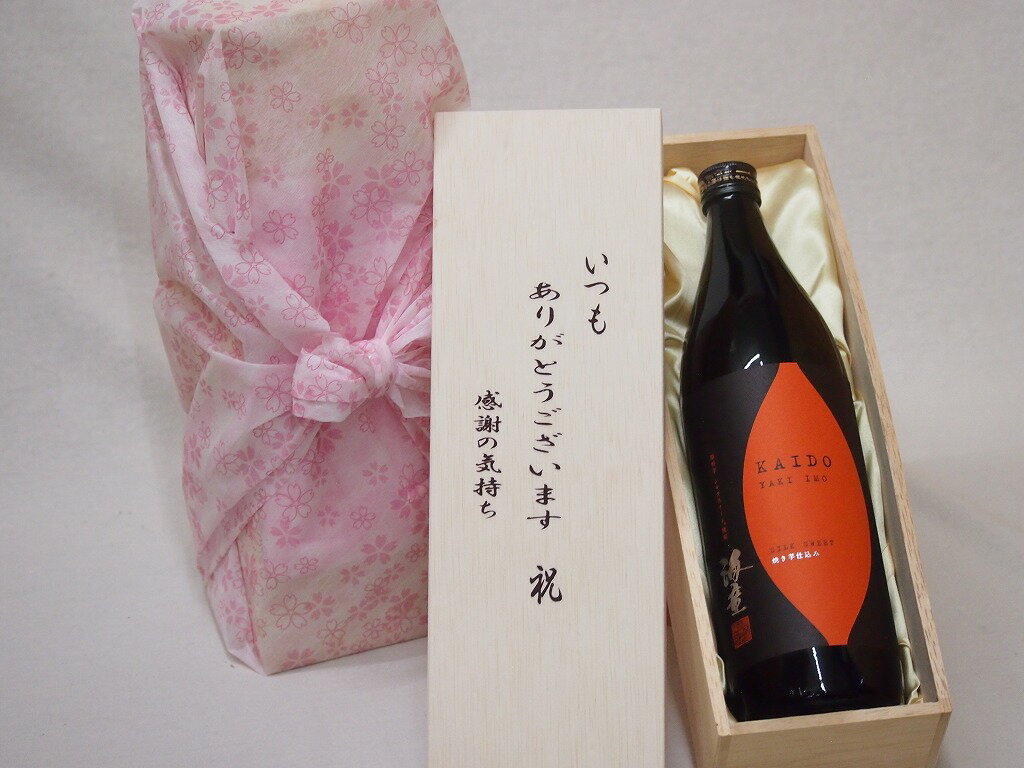 いつも
ありがとうございます 祝
感謝の気持ち
KAIDO
YAKI IMO
SILK SWEET
焼き芋仕込み
海童